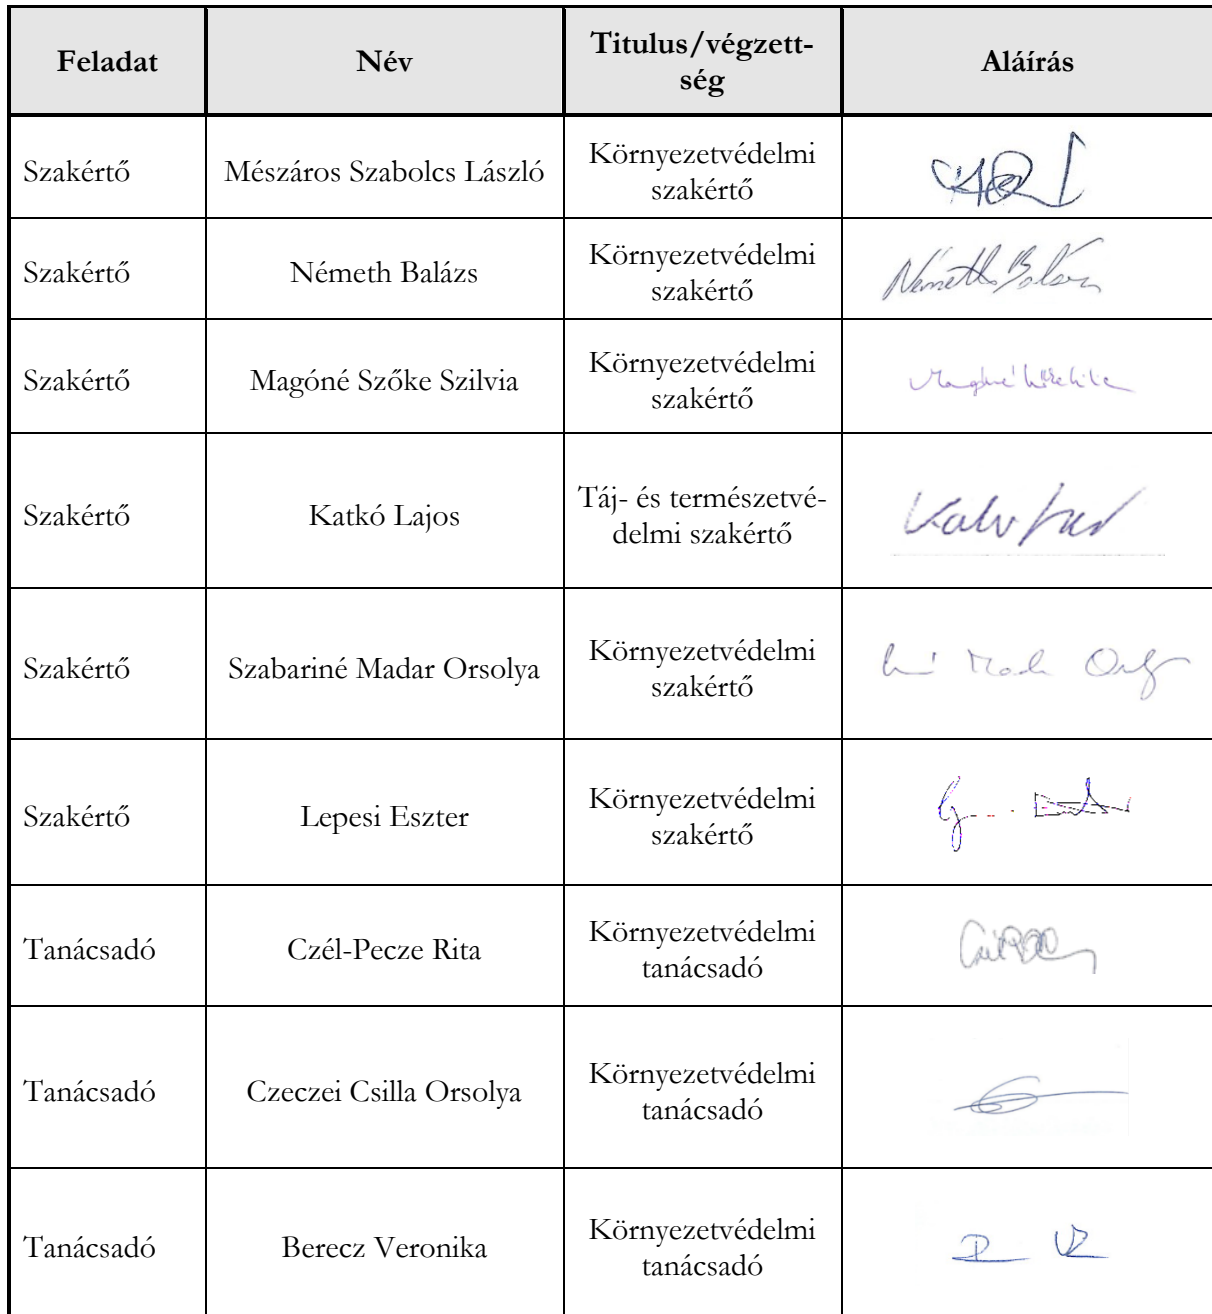 Feladat
Név
Titulus/végzett-
ség
Aláírás
Szakértő
Mészáros Szabolcs László
Környezetvédelmi
szakértő
Szakértő
Németh Balázs
Környezetvédelmi
szakértő
Németh Balázs
Szakértő
Magóné Szőke Szilvia
Környezetvédelmi
szakértő
Szakértő
Katkó Lajos
Táj- és természetvé-
delmi szakértő
Szakértő
Szabariné Madar Orsolya
Környezetvédelmi
szakértő
Szakértő
Lepesi Eszter
Környezetvédelmi
szakértő
Tanácsadó
Czél-Pecze Rita
Környezetvédelmi
tanácsadó
Tanácsadó
Czeczei Csilla Orsolya
Környezetvédelmi
tanácsadó
Tanácsadó
Berecz Veronika
Környezetvédelmi
tanácsadó